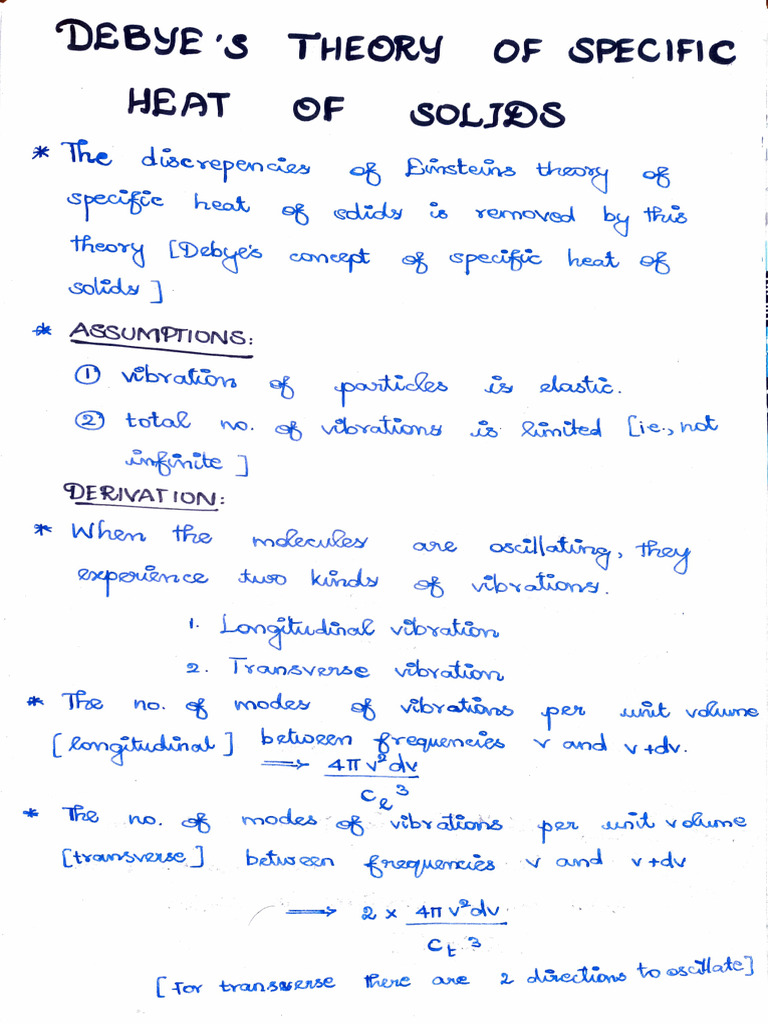 DEBYE'S THEORY OF SPECIFIC
HEAT OF SOLIDS
* The discrepencies of Einsteins theory of
specific heat of solids is removed by this
theory [Debye's concept of specific heat of
solids]
* ASSUMPTIONS:
① vibration of particles is elastic.
② total no. of vibrations is limited [ie., not
infinite]
DERIVATION:
* When the molecules are oscillating, they
experience two kinds of vibrations.
1. Longitudinal vibration
2. Transverse vibration
* The no. of modes of vibrations per unit volume
[longitudinal] between frequencies ν and ν+dν.
⟹ 4πν²dν / C_l³
* The no. of modes of vibrations per unit volume
[transverse] between frequencies ν and ν+dν
⟹ 2 × 4πν²dν / C_t³
[For transverse there are 2 directions to oscillate]